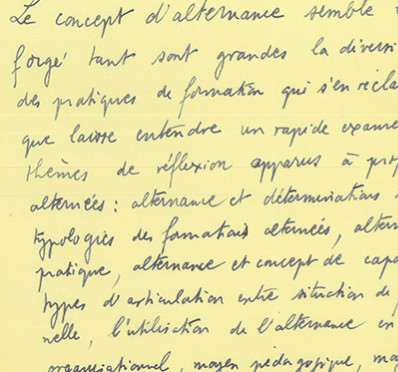 Le concept d'alternance semble
forgé tant sont grandes la diversi
des pratiques de formation qui s'en récla
que laisse entendre un rapide exame
thèmes de réflexion apparus à prop
alternées : alternance et déterminations
typologies des formations alternées, altern
pratique, alternance et concept de capa
types d'articulation entre situation de
nelle, l'utilisation de l'alternance en
organisationnel, moyen pédagogique, mo